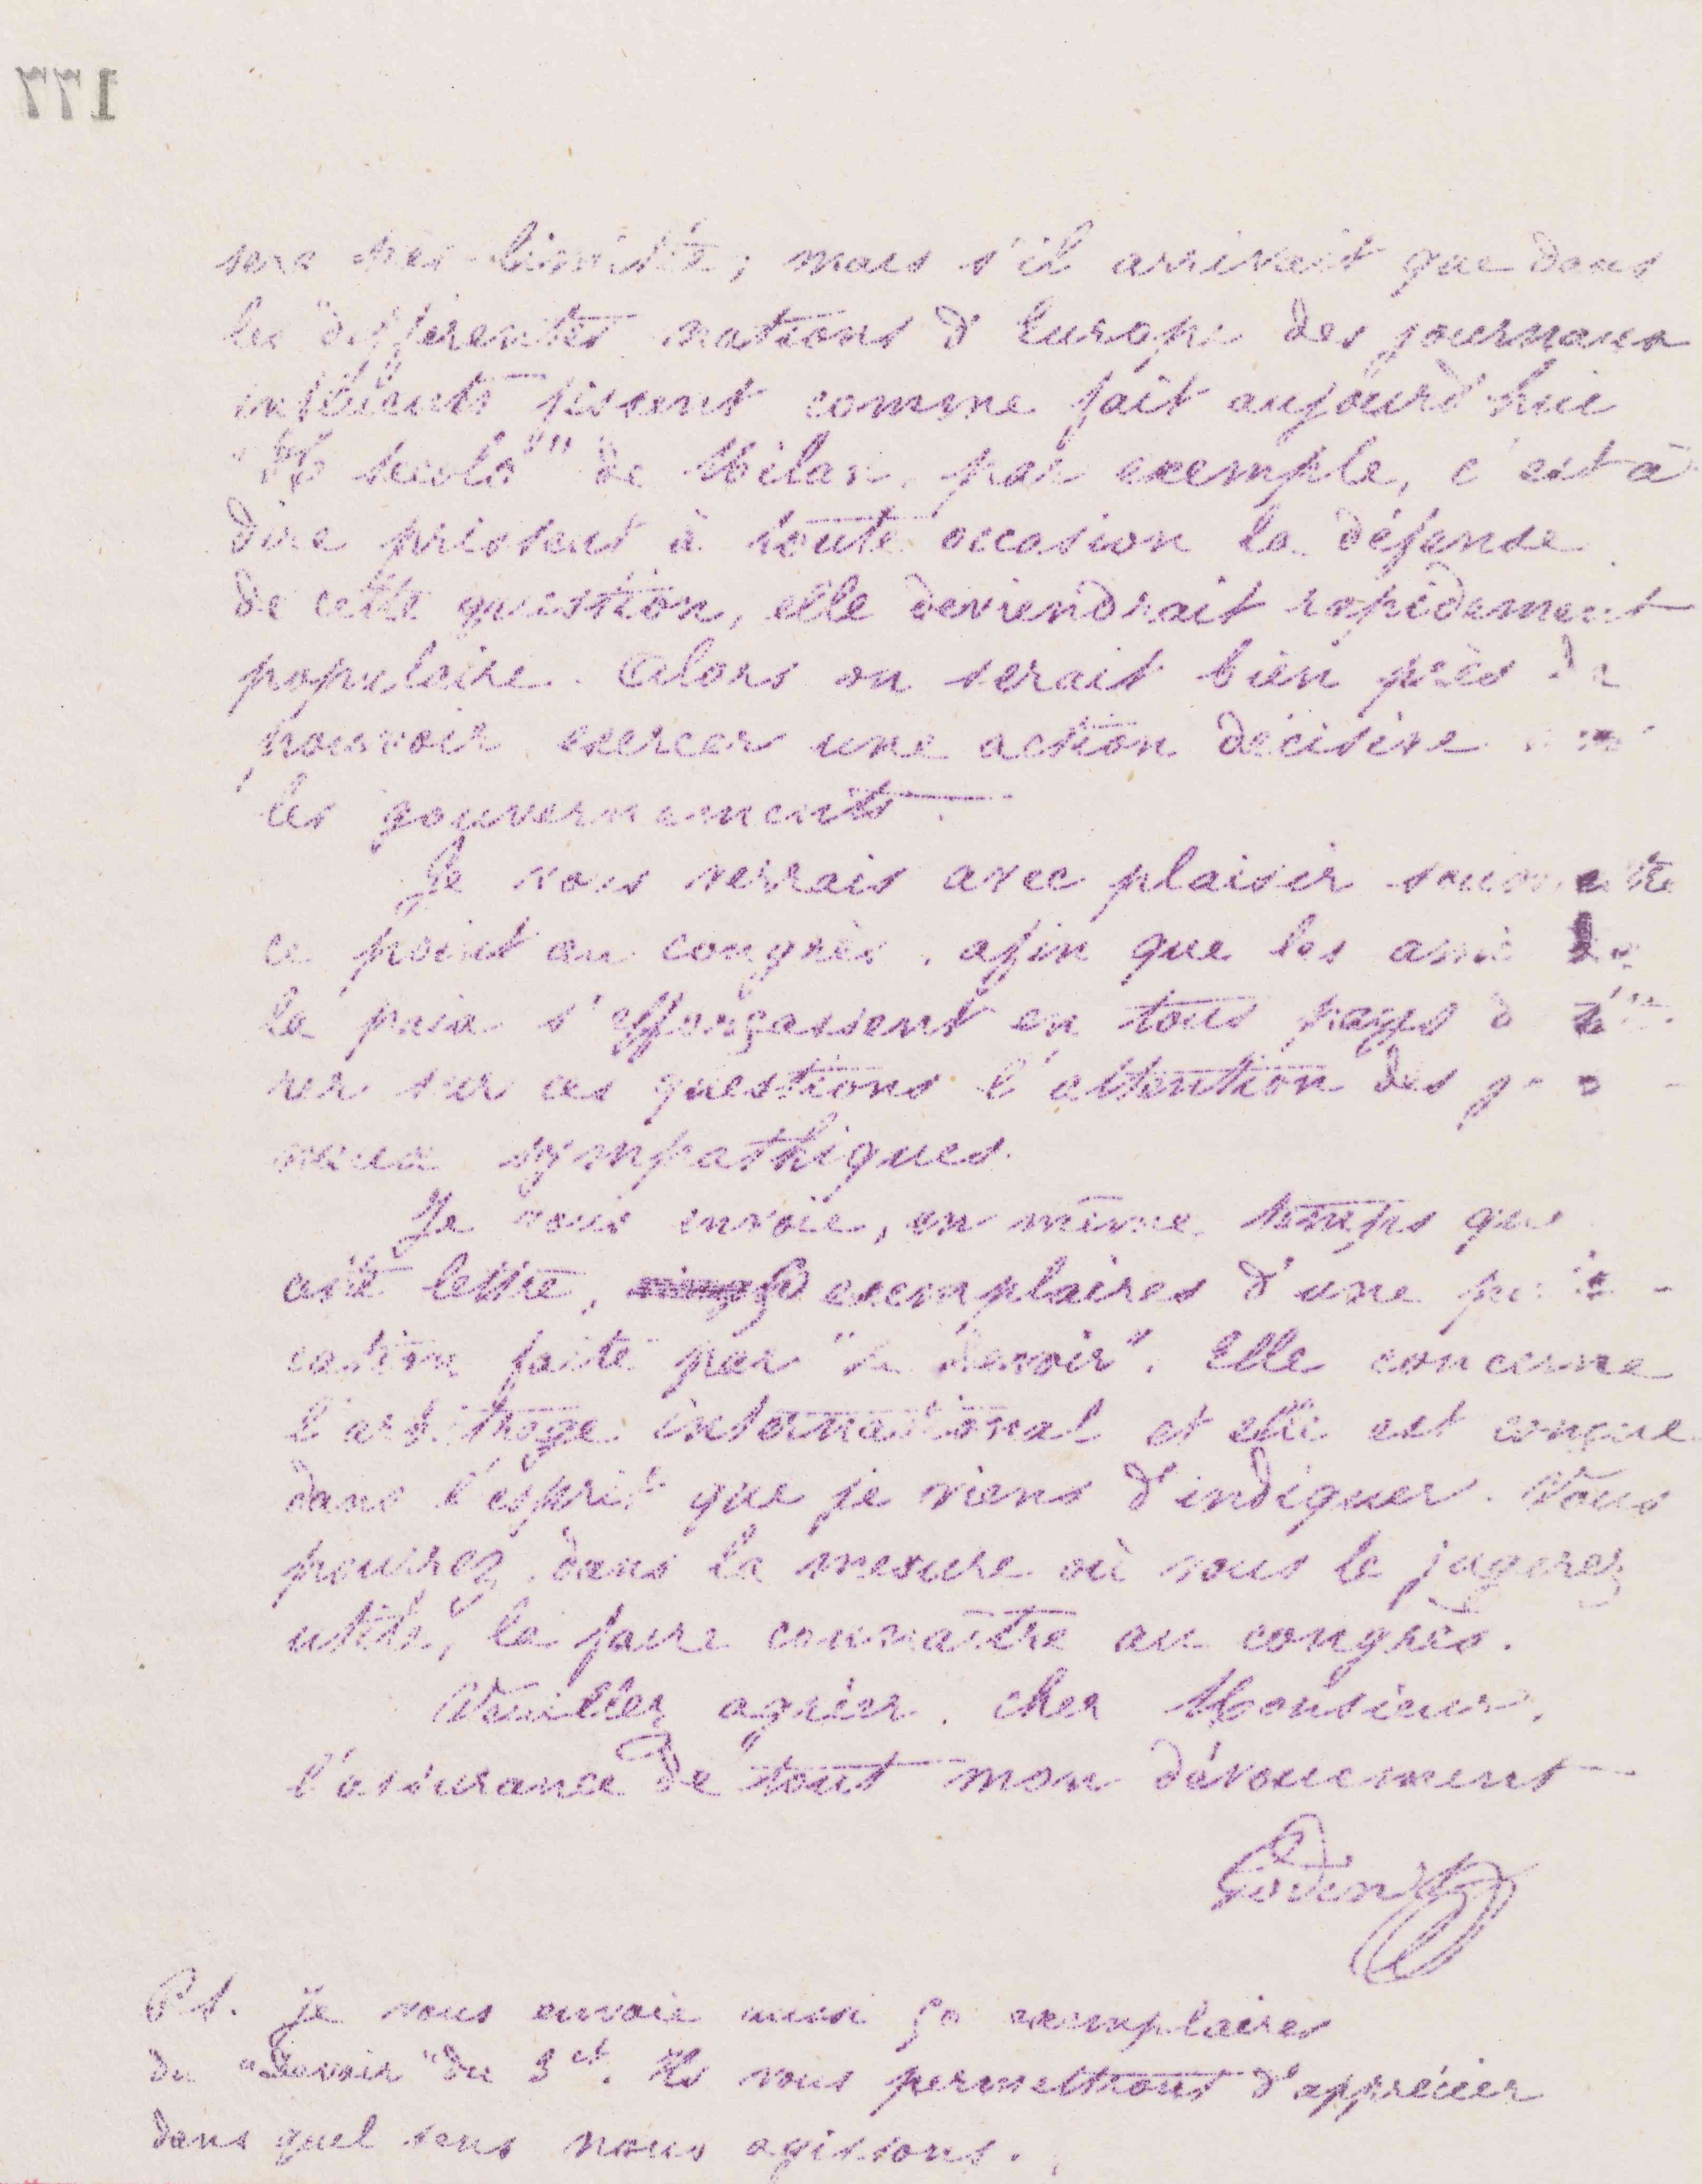 177
sera très limitée; mais s'il arrivait que dans
les différentes nations d'Europe des journaux
influents fissent comme fait aujourd'hui
"Il Secolo" de Milan, par exemple, c'est à
dire prissent à toute occasion la défense
de cette question, elle deviendrait rapidement
populaire. Alors on serait bien près de
pouvoir exercer une action décisive
les gouvernements.
Je vous verrais avec plaisir soumettre
ce point au congrès, afin que les amis de
la paix s'efforçassent en tous pays d
rer sur ces questions l'attention des
naux sympathiques.
Je vous envoie, en même temps que
cette lettre, exemplaires d'une
cation faite par "le Devoir". Elle concerne
l'arbitrage international et elle est conçue
dans l'esprit que je viens d'indiquer. Vous
pourrez, dans la mesure où vous le jugerez
utile, la faire connaître au congrès.
Veuillez agréer, cher Monsieur,
l'assurance de tout mon dévouement
Godin
P.S. Je vous envoie aussi 50 exemplaires
du "Devoir" du 3 ct. Ils vous permettront d'apprécier
dans quel sens nous agissons.